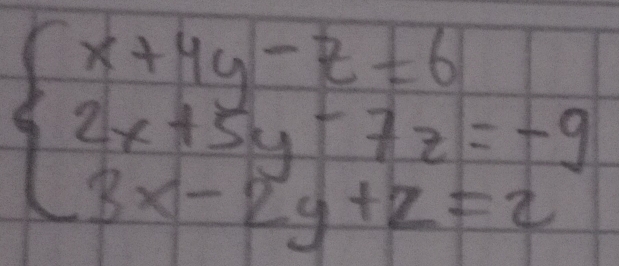 x+4y-z=6
2x+5y-7z=-9
3x-2y+z=2